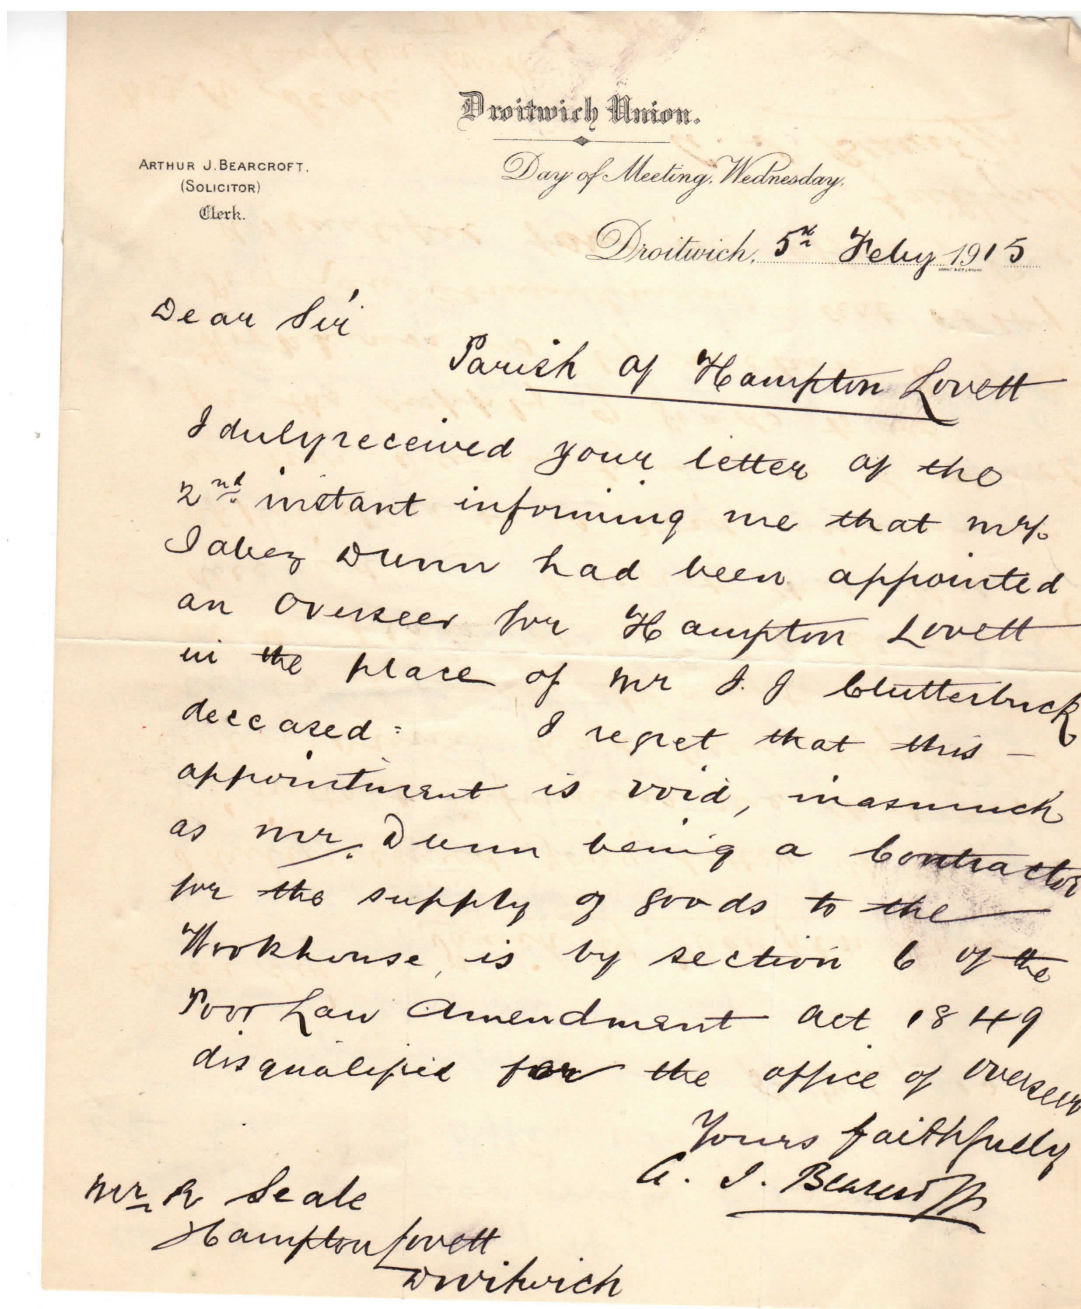 Droitwich Union.
ARTHUR J. BEARCROFT.
(SOLICITOR)
Clerk.
Day of Meeting, Wednesday.
Droitwich, 5th Feby 1915
Dear Sir
Parish of Hampton Lovett
I duly received your letter of the
2nd instant informing me that Mr.
Jabez Dunn had been appointed
an Overseer for Hampton Lovett
in the place of Mr J. J Clutterbuck
deceased: I regret that this –
appointment is void, inasmuch
as Mr. Dunn being a Contractor
for the supply of goods to the
Workhouse, is by section 6 of the
Poor Law Amendment Act 1849
disqualified for the office of Overseer
Yours faithfully
A. J. Bearcroft
Mr R Seale
Hampton Lovett
Droitwich